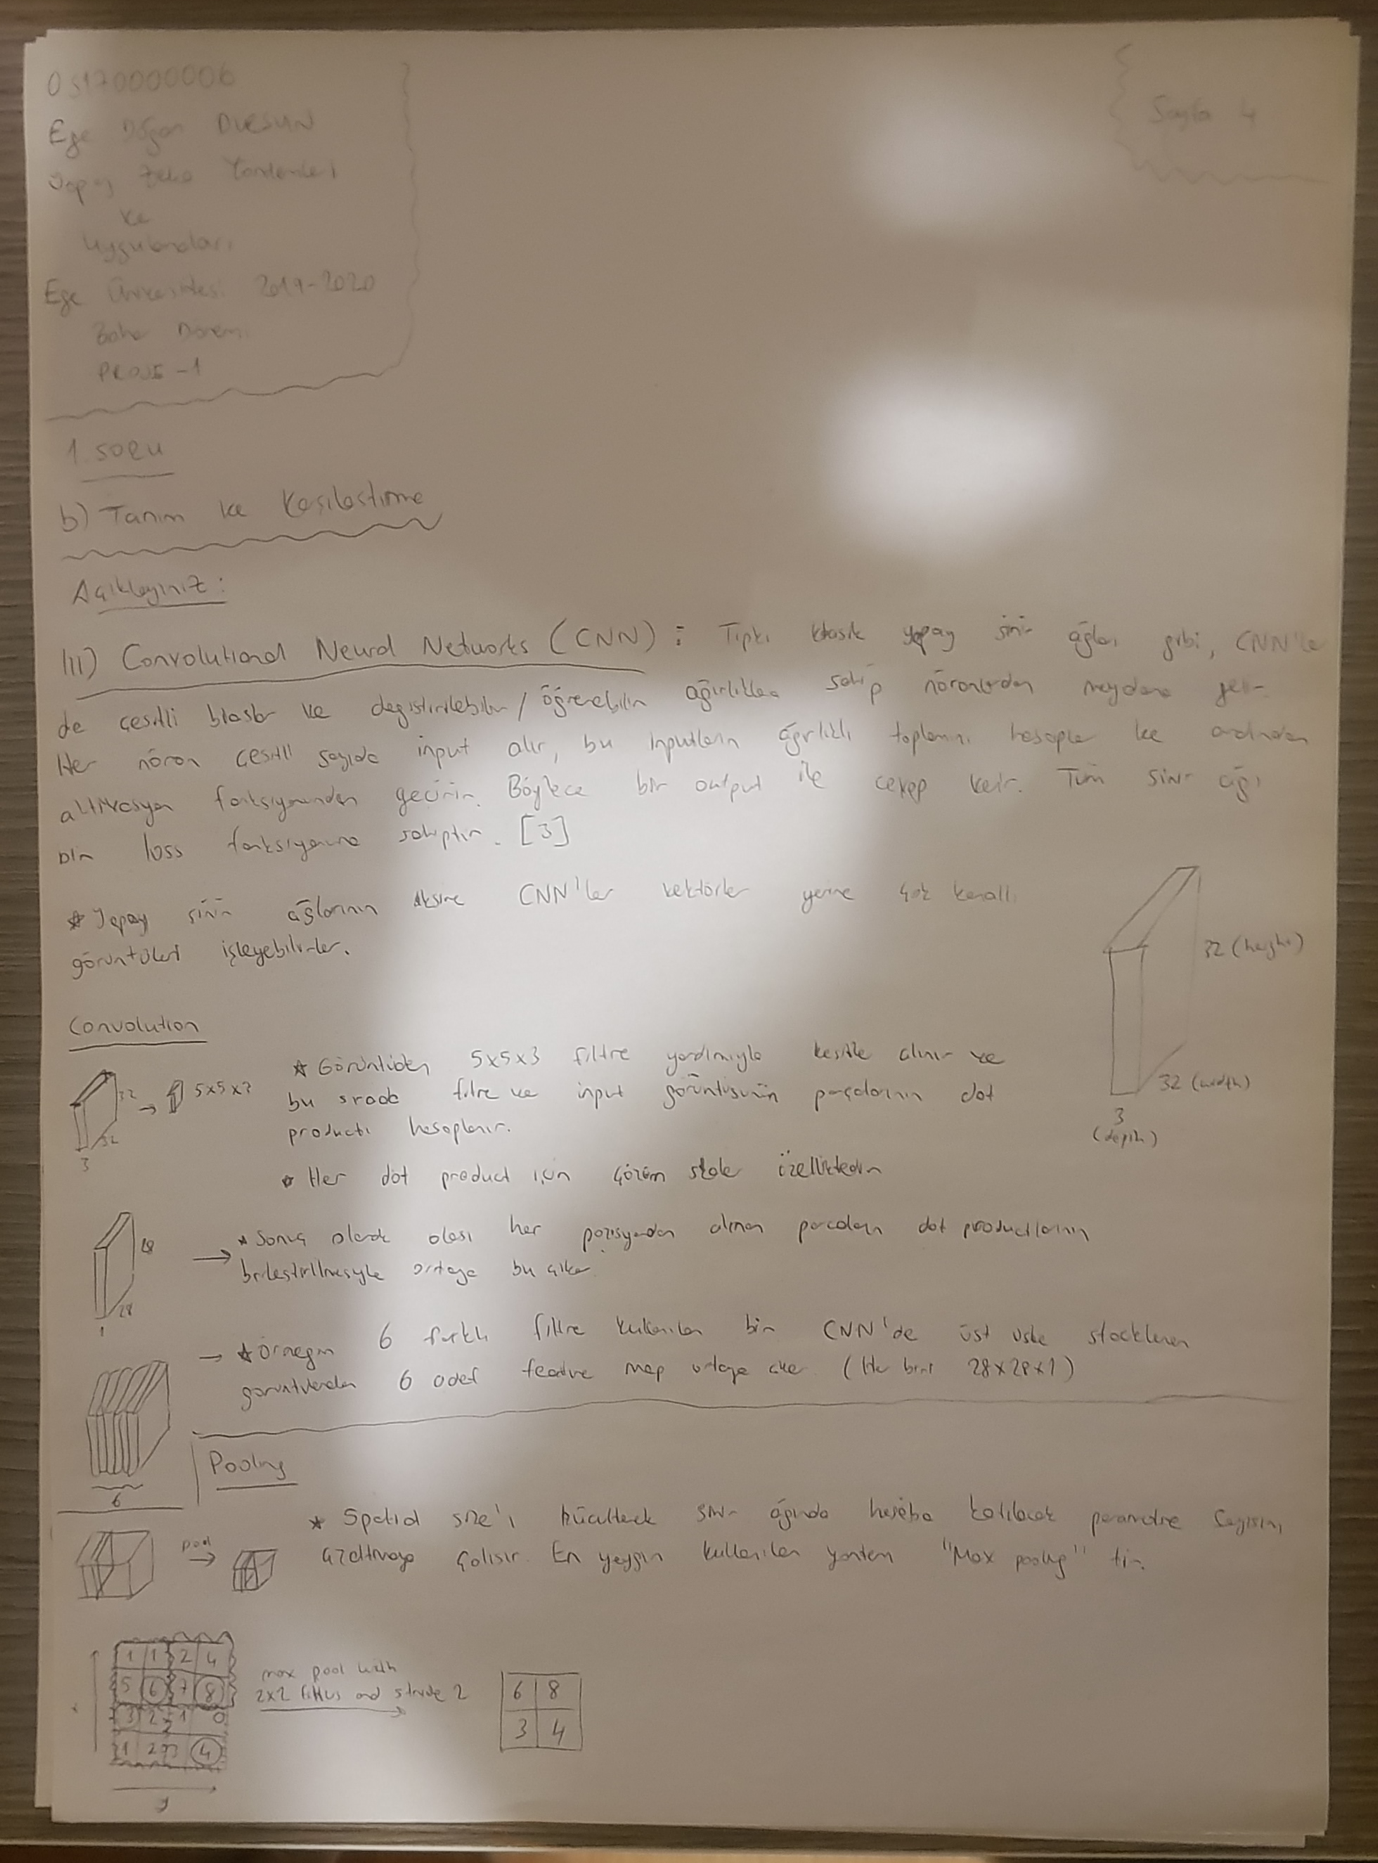 05170000006
Ege Doğan DURSUN
Yapay Zeka Yöntemleri
ve
Uygulamaları
Ege Üniversitesi 2019-2020
Bahar Dönemi
PROJE-1
Sayfa 4
1. SORU
b) Tanım ve Karşılaştırma
Açıklayınız:
III) Convolutional Neural Networks (CNN) : Tıpkı klasik yapay sinir ağları gibi, CNN'ler
de çeşitli biaslar ve değiştirilebilir / öğrenebilir ağırlıklara sahip nöronlardan meydana gelir.
Her nöron çeşitli sayıda input alır, bu inputların ağırlıklı toplamını hesaplar ve ardından
aktivasyon fonksiyonundan geçirir. Böylece bir output ile cevap verir. Tüm sinir ağı
bir loss fonksiyonuna sahiptir. [3]
* Yapay sinir ağlarının aksine CNN'ler vektörler yerine çok kanallı
görüntüleri işleyebilirler.
32 (height)
32 (width)
3
(depth)
Convolution
32
32
3
→ 5x5x3
* Görüntüden 5x5x3 filtre yardımıyla kesitler alınır ve
bu sırada filtre ve input görüntüsünün parçalarının dot
productı hesaplanır.
* Her dot product için çözüm skaler özelliktedir
28
28
1
→ * Sonuç olarak olası her pozisyondan alınan parçaların dot productlarının
birleştirilmesiyle ortaya bu çıkar.
→ * Örneğin 6 farklı filtre kullanılan bir CNN'de üst üste stacklenen
görüntülerden 6 adet feature map ortaya çıkar (Her biri 28x28x1)
6
Pooling
* Spatial size'ı küçülterek sinir ağında hesaba katılacak parametre sayısını
azaltmaya çalışır. En yaygın kullanılan yöntem "Max pooling" tir.
pool
→
1 1 2 4
5 6 7 8
3 2 1 0
1 2 3 4
x
y
max pool with
2x2 filters and stride 2
6 8
3 4